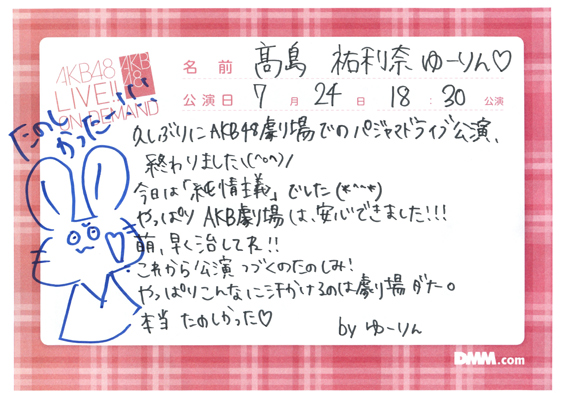 AKB48
LIVE!!
ON DEMAND
AKB
48
名前 髙島 祐利奈 ゆーりん♡
公演日 7月24日 18:30 公演
たのし
かったー!!!
久しぶりにAKB48劇場でのパジャマドライブ公演、
終わりました\(^o^)/
今日は「純情主義」でした(*^^*)
やっぱりAKB劇場は、安心できました!!!
萌、早く治してネ!!
これから公演つづくのたのしみ!
やっぱりこんなに汗かけるのは劇場ダケ。
本当 たのしかった♡
by ゆーりん
DMM.com